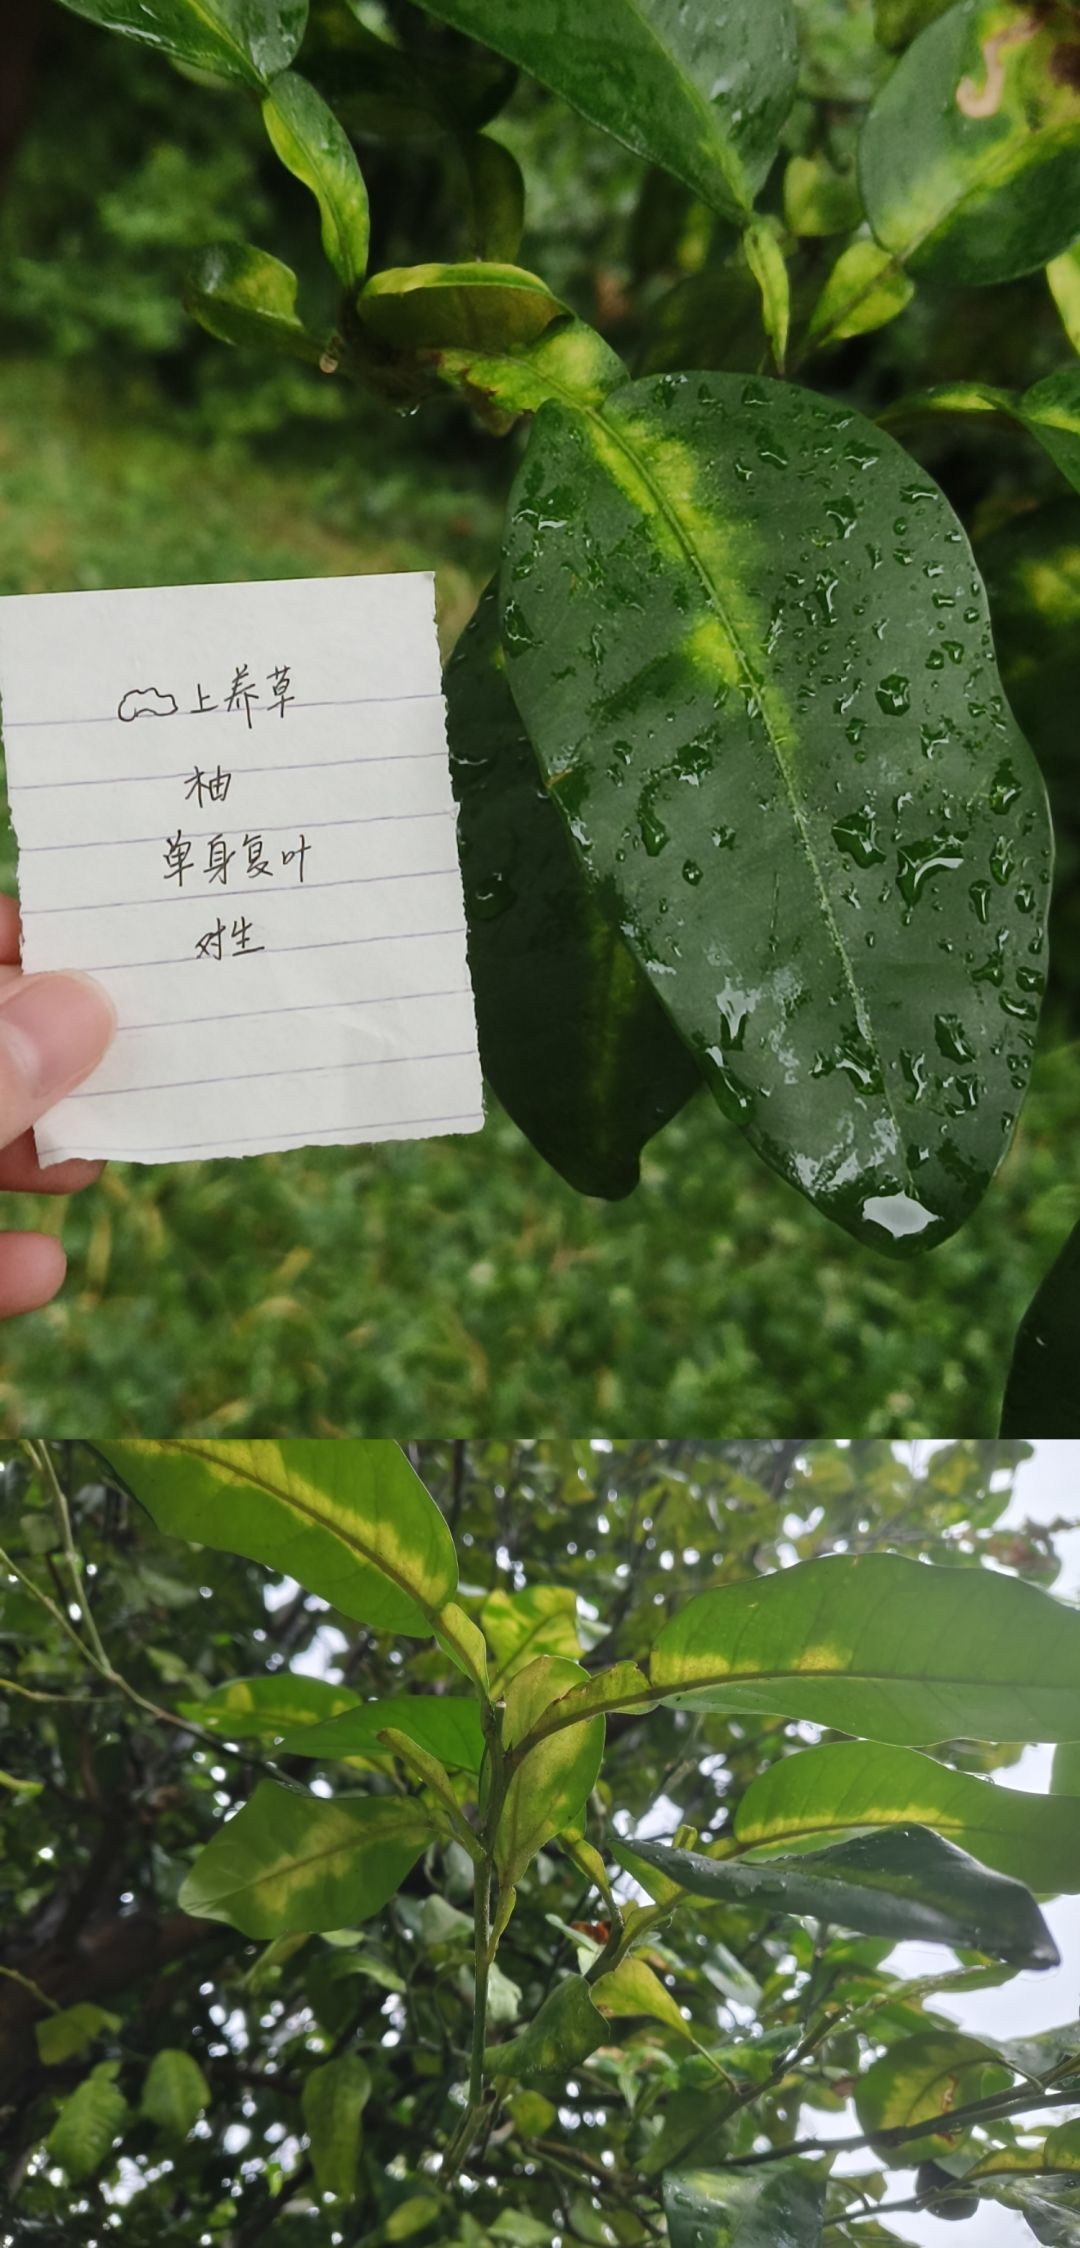 上养草
柚
单身复叶
对生